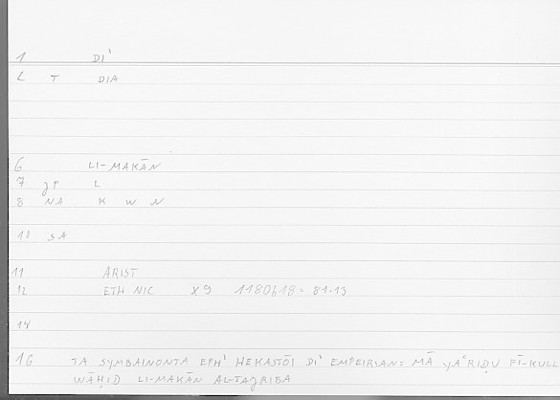 1 DI'
2 T DIA
6 LI-MAKĀN
7 gP L
8 NA K W N
10 SA
11 ARIST
12 ETH NIC X9 1180b18 = 81.13
14
16 TA SYMBAINONTA EPH' HEKASTŌI DI' EMPEIRIAN = MĀ YAʿRIḌU FĪ-KULL
WĀḤID LI-MAKĀN AL-TAǧRIBA